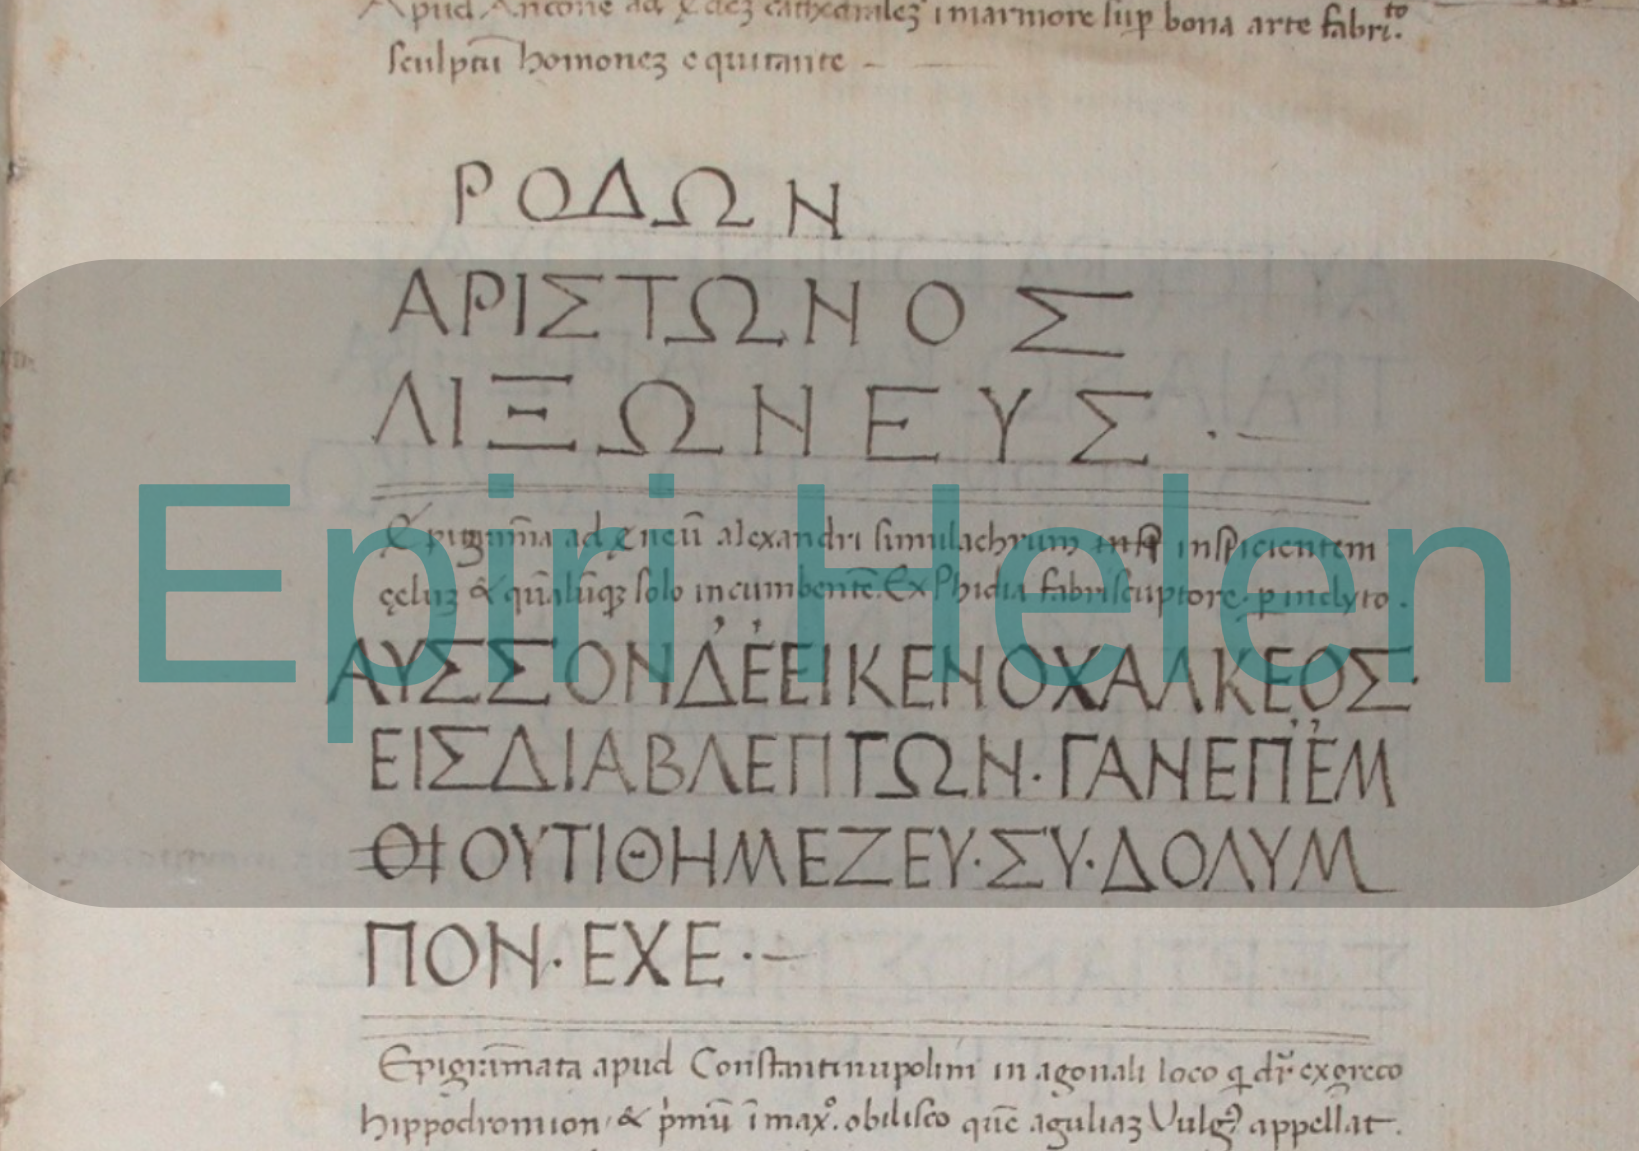 Apud Ancone ad ędeꝫ cathedraleꝫ ī marmore suꝑ bona arte fabri.to
sculptū homoneꝫ equitante –
ΡΟΔΩΝ
ΑΡΙΣΤΩΝΟΣ
ΛΙΞΩΝΕΥΣ · –
Epigrāma ad ęneū alexandri simulachrum inspicientem
çeluꝫ & solo incumbentē. Ex Phidia fabrisculptore ꝑinclyto.
ΑΥΣΣΟΝΔ̓ἘΕΙΚΕΝΟΧΑΛΚΕΟΣ·
ΕΙΣΔΙΑΒΛΕΠΤΩΝ·ΓΑΝΕΠ̓ἘΜ
ΟΙΟΥΤΙΘΗΜΕΖΕΥ·ΣΥ·ΔΟΛΥΜ
ΠΟΝ·ΕΧΕ·–
Epigrāmata apud Constantinupolim in agonali loco q dr̄ exgreco
hippodromion & pͥmū ī maxº. obilisco quē aguliaꝫ Vulgꝰ appellat.
Epiri Helen